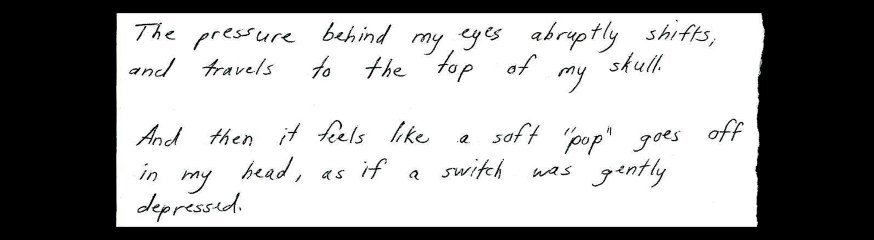 The pressure behind my eyes abruptly shifts,
and travels to the top of my skull.
And then it feels like a soft "pop" goes off
in my head, as if a switch was gently
depressed.